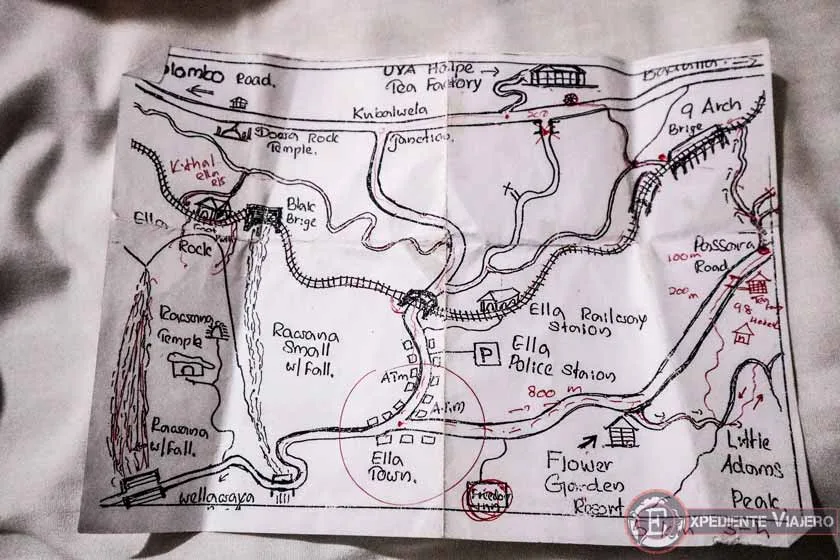 olombo Road.
UVA Halpe
Tea Factory
Badulla
Kubalwela
Junction.
9 Arch
Brige
Doara Rock
Temple.
Kithal
ella
R/S
Ella
Rock
Blak
Brige
Passara
Road
100m
200m
98
Ravana
Temple
Ravana
Small
w/fall.
Ella Railway
Staion
P
Ella
Police Staion
ATM
ATM
800 m
Ravana
w/Fall.
Wellawaya
Ella
Town.
Freedom
Inn
Flower
Garden
Resort
Little
Adams
Peak
EXPEDIENTE VIAJERO